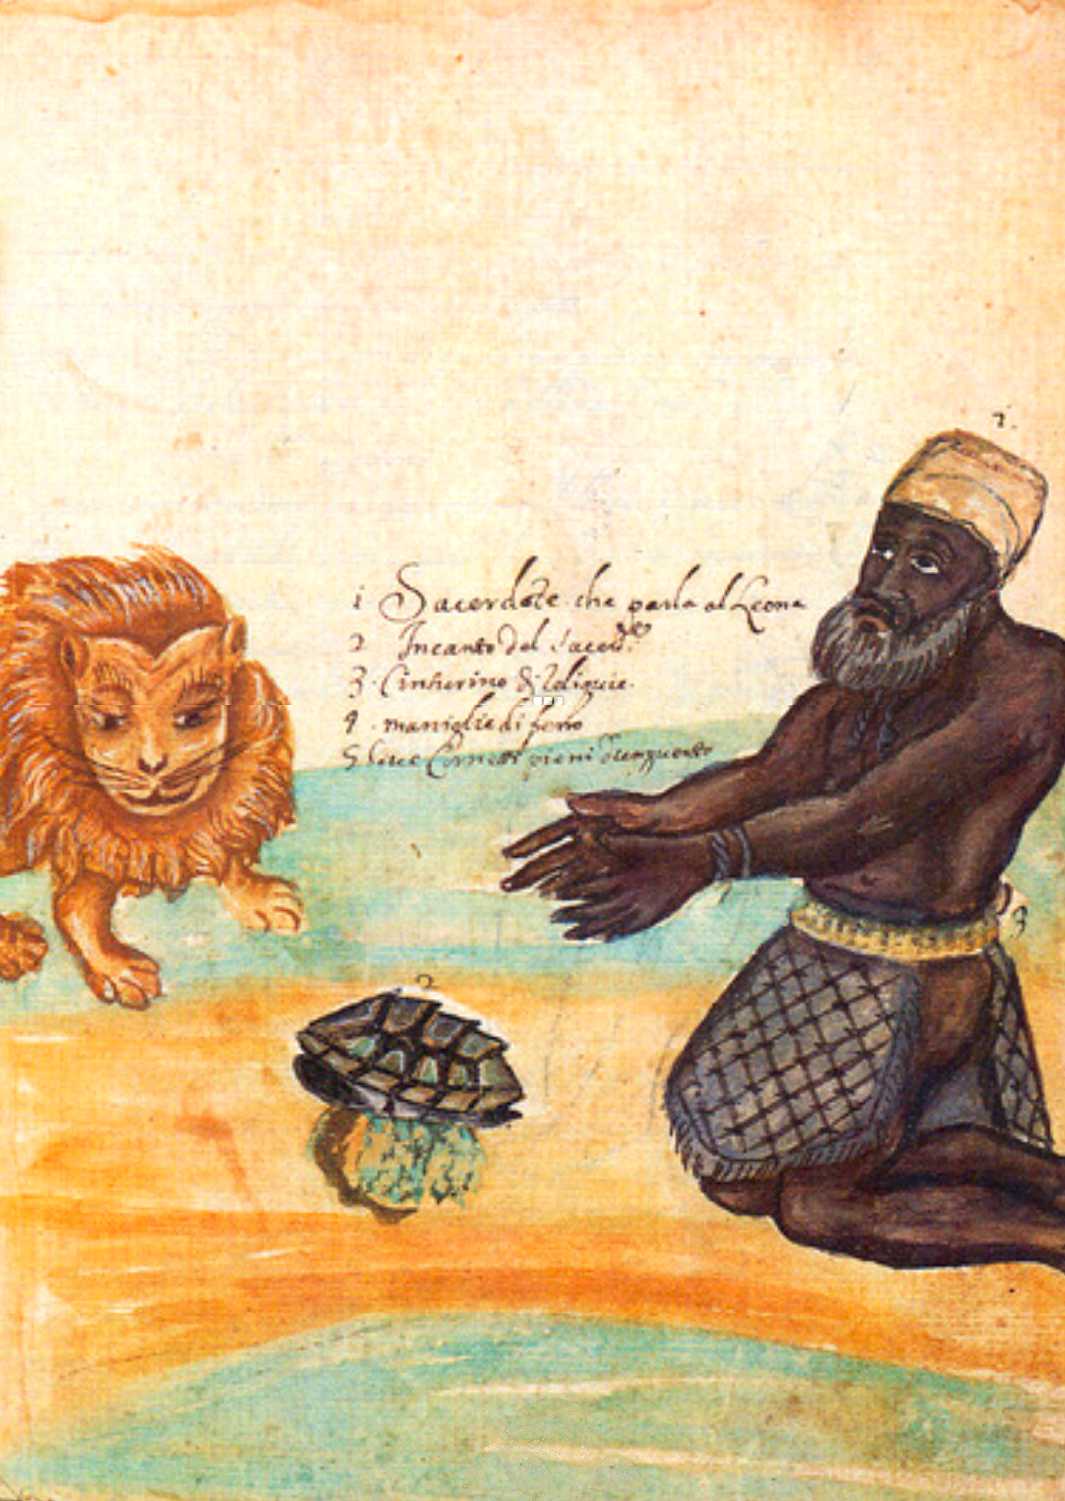 1.
1 Sacerdote che parla al Leone
2 Incanto del Sacerd.te
3. Cinturino di Reliquie.
4. maniglie di ferro
5 Cornetti pieni d'unguento
3
2